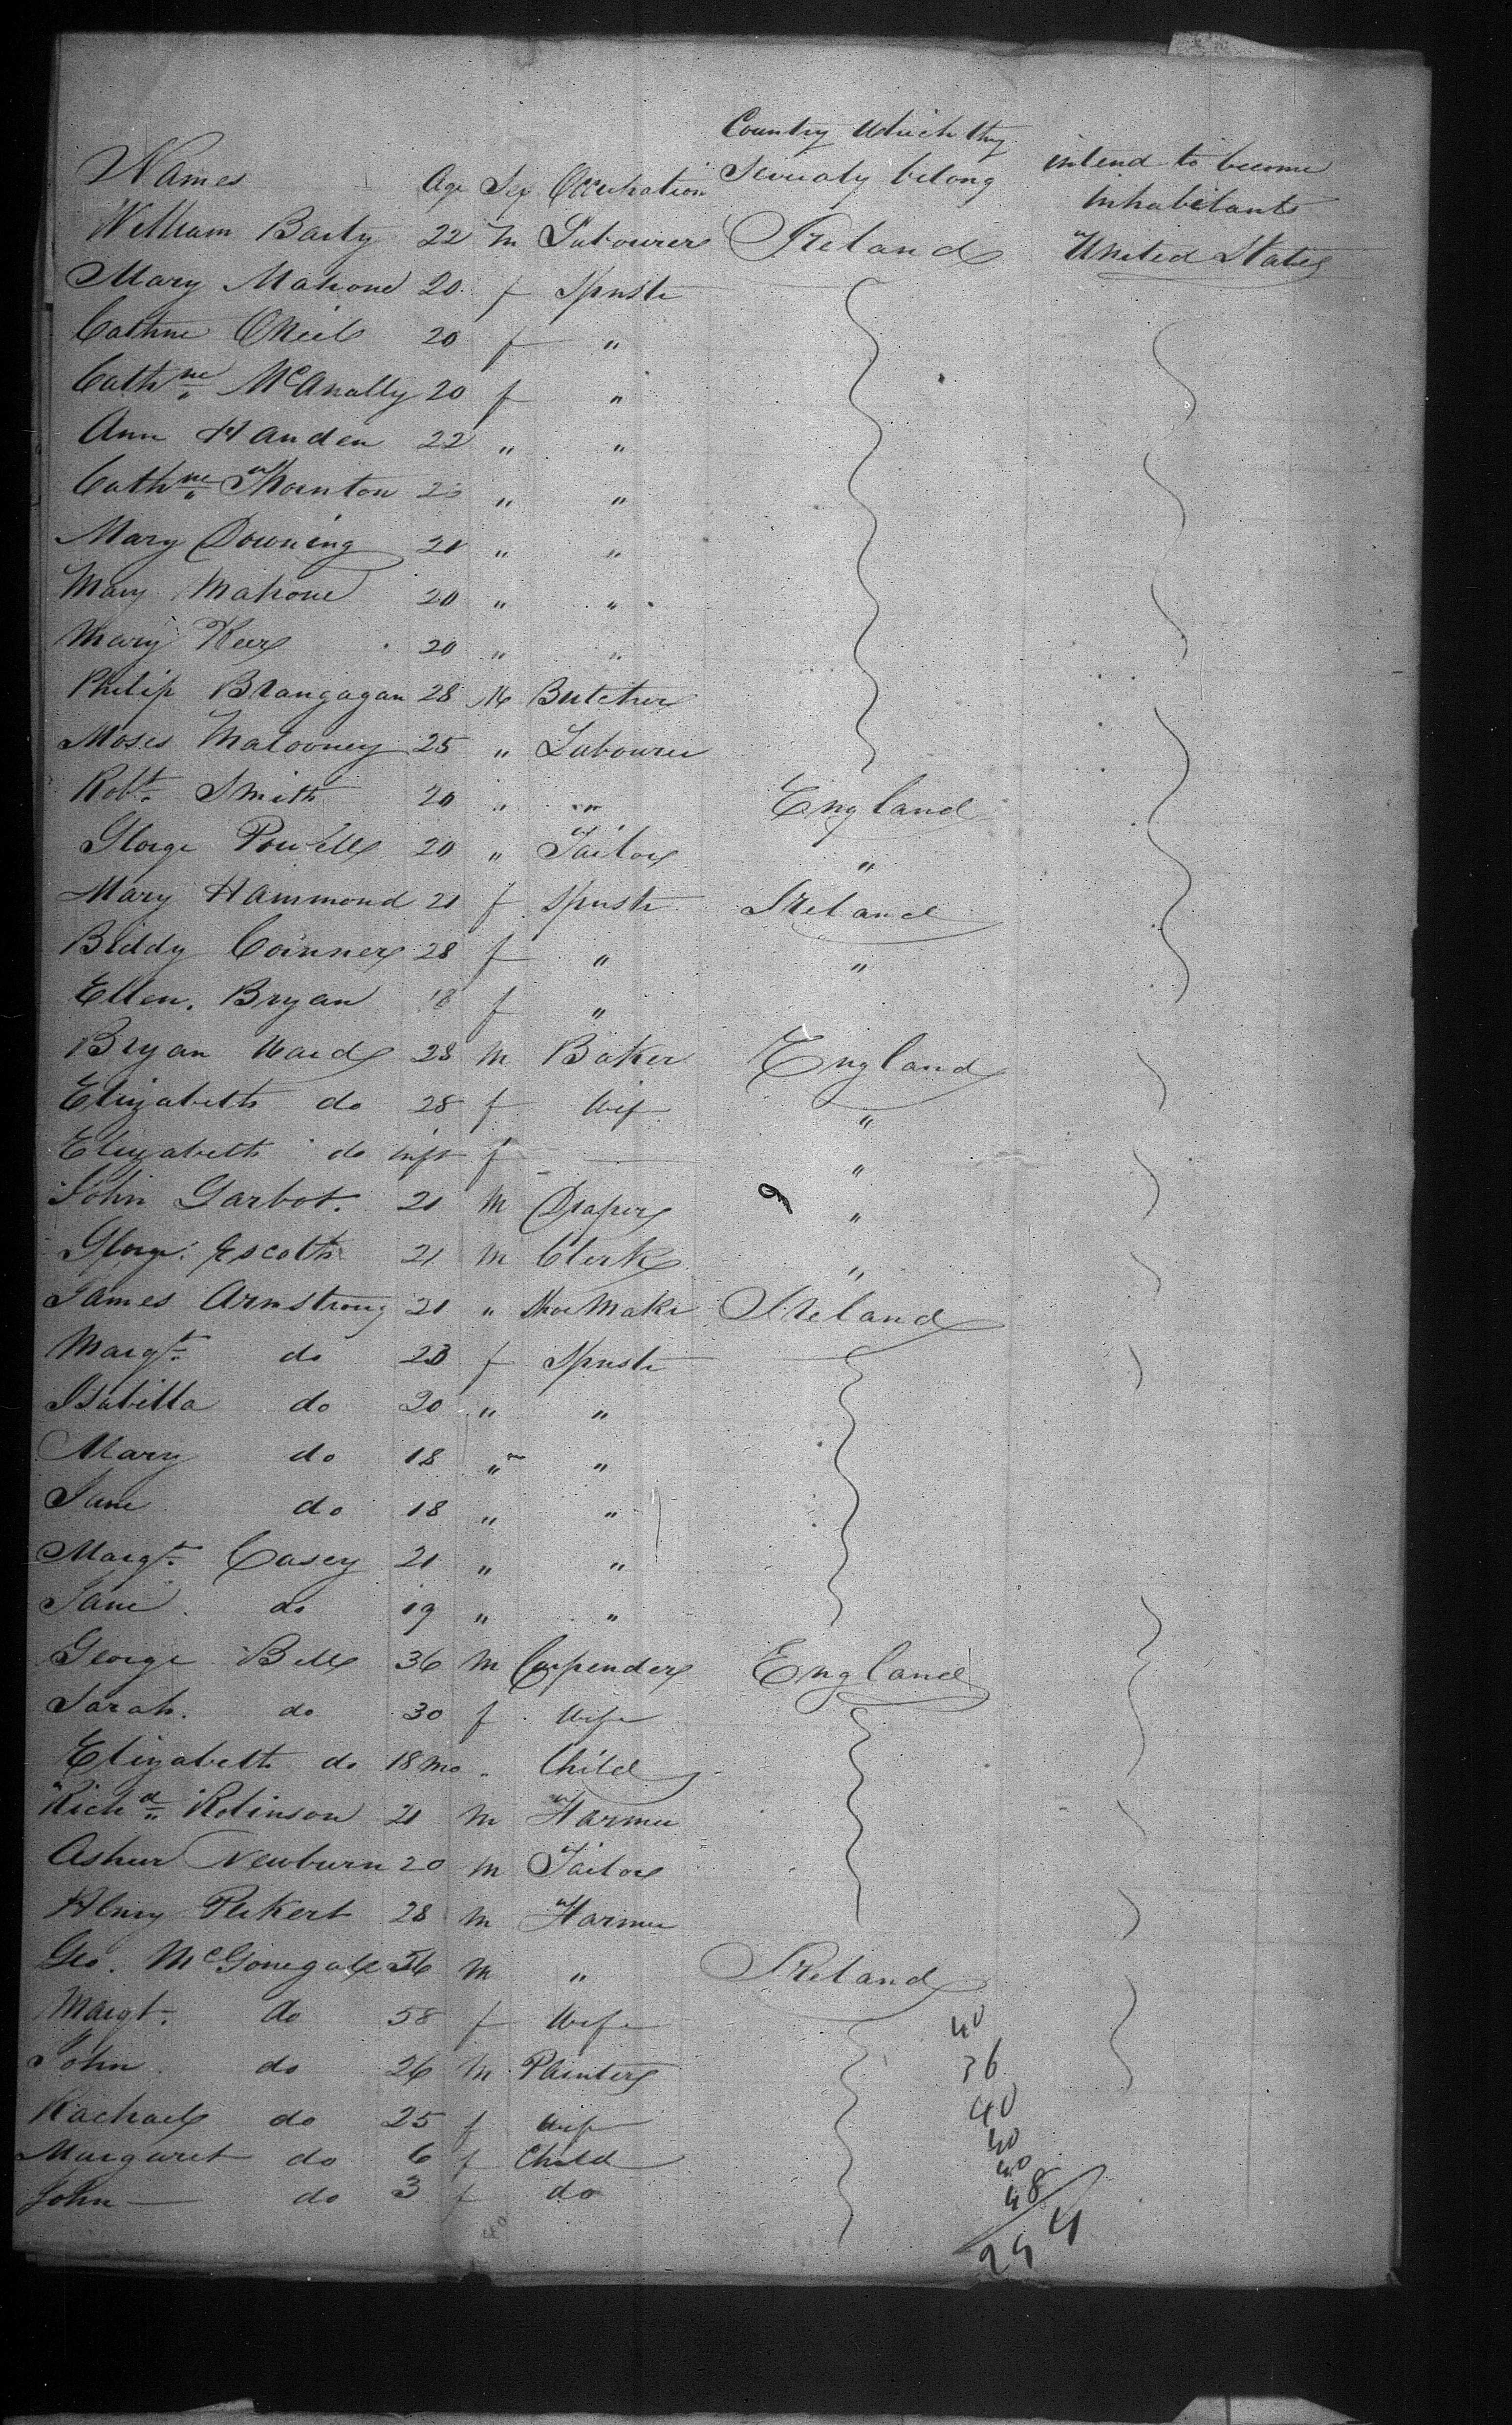 Names Age Sex Occupation Country Which they Severaly belong intend to become inhabitants
William Barty 22 M Labourer Ireland United States
Mary Mahone 20 f Spinstr
Cathne ONeil 20 f "
Cathne McAnally 20 f "
Ann Handen 22 " "
Cathne Thornton 23 " "
Mary Downing 21 " "
Mary Mahone 20 " "
Mary Keer 20 " "
Philip Brangagan 28 M Butcher
Moses Malooney 25 " Labourer
Robt Smith 20 " " England
George Powell 20 " Tailor "
Mary Hammond 21 f Spinstr Ireland
Biddy Conner 28 f " "
Ellen Bryan 18 f "
Bryan Ward 28 M Baker England
Elizabeth do 28 f Wif "
Elizabeth do inft f — "
John Garbot 21 M Draper "
George Escoth 21 M Clerk "
James Armstrong 21 " Shoe Maker Ireland
Margt do 23 f Spinstr
Isabella do 20 " "
Mary do 18 " "
Jane do 18 " "
Margt Casey 21 " "
Jane do 19 " "
George Bell 36 M Carpender England
Sarah do 30 f Wife
Elizabeth do 18 mo " Child
Richd Robinson 21 M Farmer
Asher Newburn 20 M Tailor
Henry Pekert 28 M Farmer
Geo. McGonegale 56 M " Ireland
Margt do 58 f Wife
John do 26 M Painter
Rachael do 25 f Wife
Margaret do 6 f Child
John do 3 f do
40
36
40
40
40
48
244
40